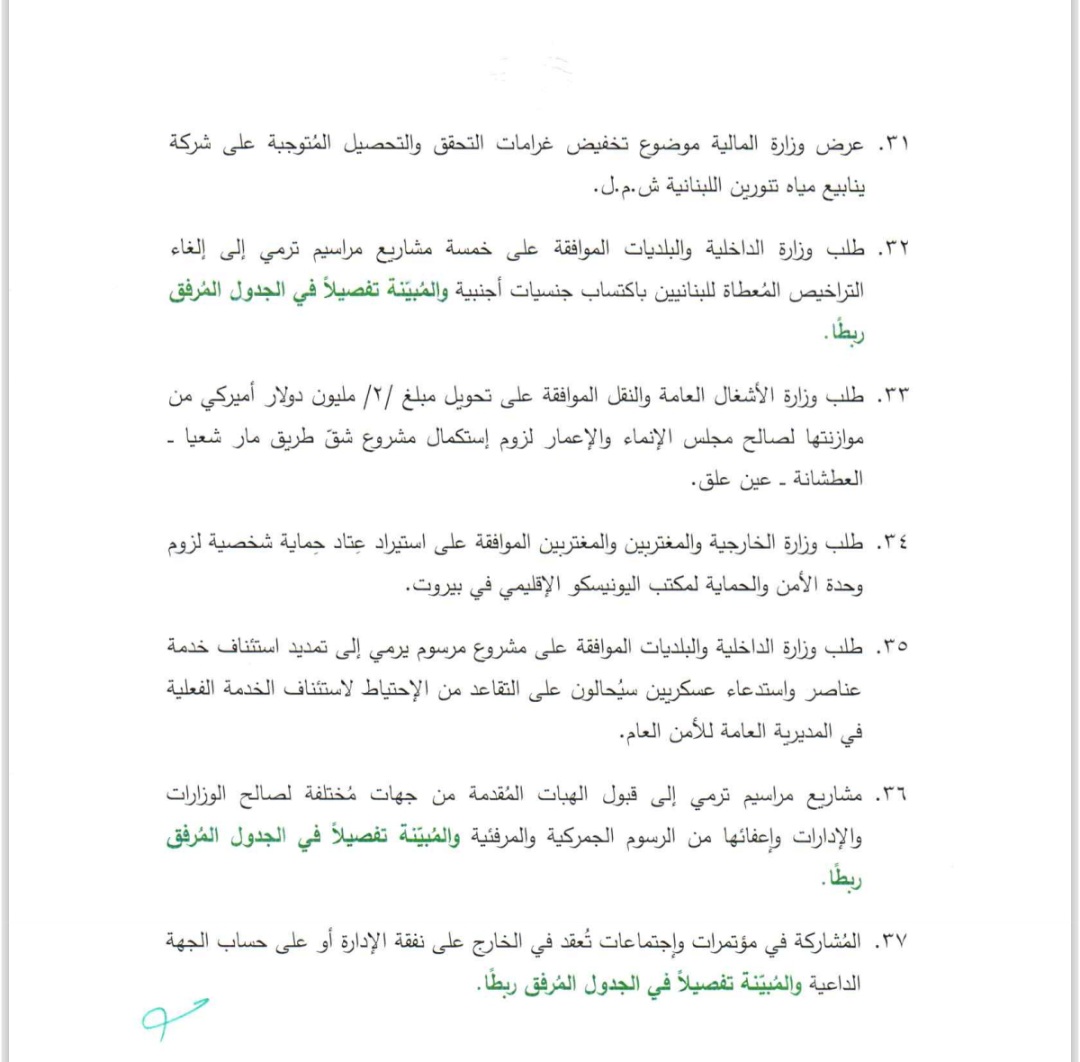 ٣١. عرض وزارة المالية موضوع تخفيض غرامات التحقق والتحصيل المُتوجبة على شركة
ينابيع مياه تنورين اللبنانية ش.م.ل.
٣٢. طلب وزارة الداخلية والبلديات الموافقة على خمسة مشاريع مراسيم ترمي إلى إلغاء
التراخيص المُعطاة للبنانيين باكتساب جنسيات أجنبية والمُبيّنة تفصيلاً في الجدول المُرفق
ربطًا.
٣٣. طلب وزارة الأشغال العامة والنقل الموافقة على تحويل مبلغ /٢/ مليون دولار أميركي من
موازنتها لصالح مجلس الإنماء والإعمار لزوم إستكمال مشروع شقّ طريق مار شعيا ـ
العطشانة ـ عين علق.
٣٤. طلب وزارة الخارجية والمغتربين والمغتربين الموافقة على استيراد عِتاد حِماية شخصية لزوم
وحدة الأمن والحماية لمكتب اليونيسكو الإقليمي في بيروت.
٣٥. طلب وزارة الداخلية والبلديات الموافقة على مشروع مرسوم يرمي إلى تمديد استئناف خدمة
عناصر واستدعاء عسكريين سيُحالون على التقاعد من الإحتياط لاستئناف الخدمة الفعلية
في المديرية العامة للأمن العام.
٣٦. مشاريع مراسيم ترمي إلى قبول الهبات المُقدمة من جهات مُختلفة لصالح الوزارات
والإدارات وإعفائها من الرسوم الجمركية والمرفئية والمُبيّنة تفصيلاً في الجدول المُرفق
ربطًا.
٣٧. المُشاركة في مؤتمرات وإجتماعات تُعقد في الخارج على نفقة الإدارة أو على حساب الجهة
الداعية والمُبيّنة تفصيلاً في الجدول المُرفق ربطًا.